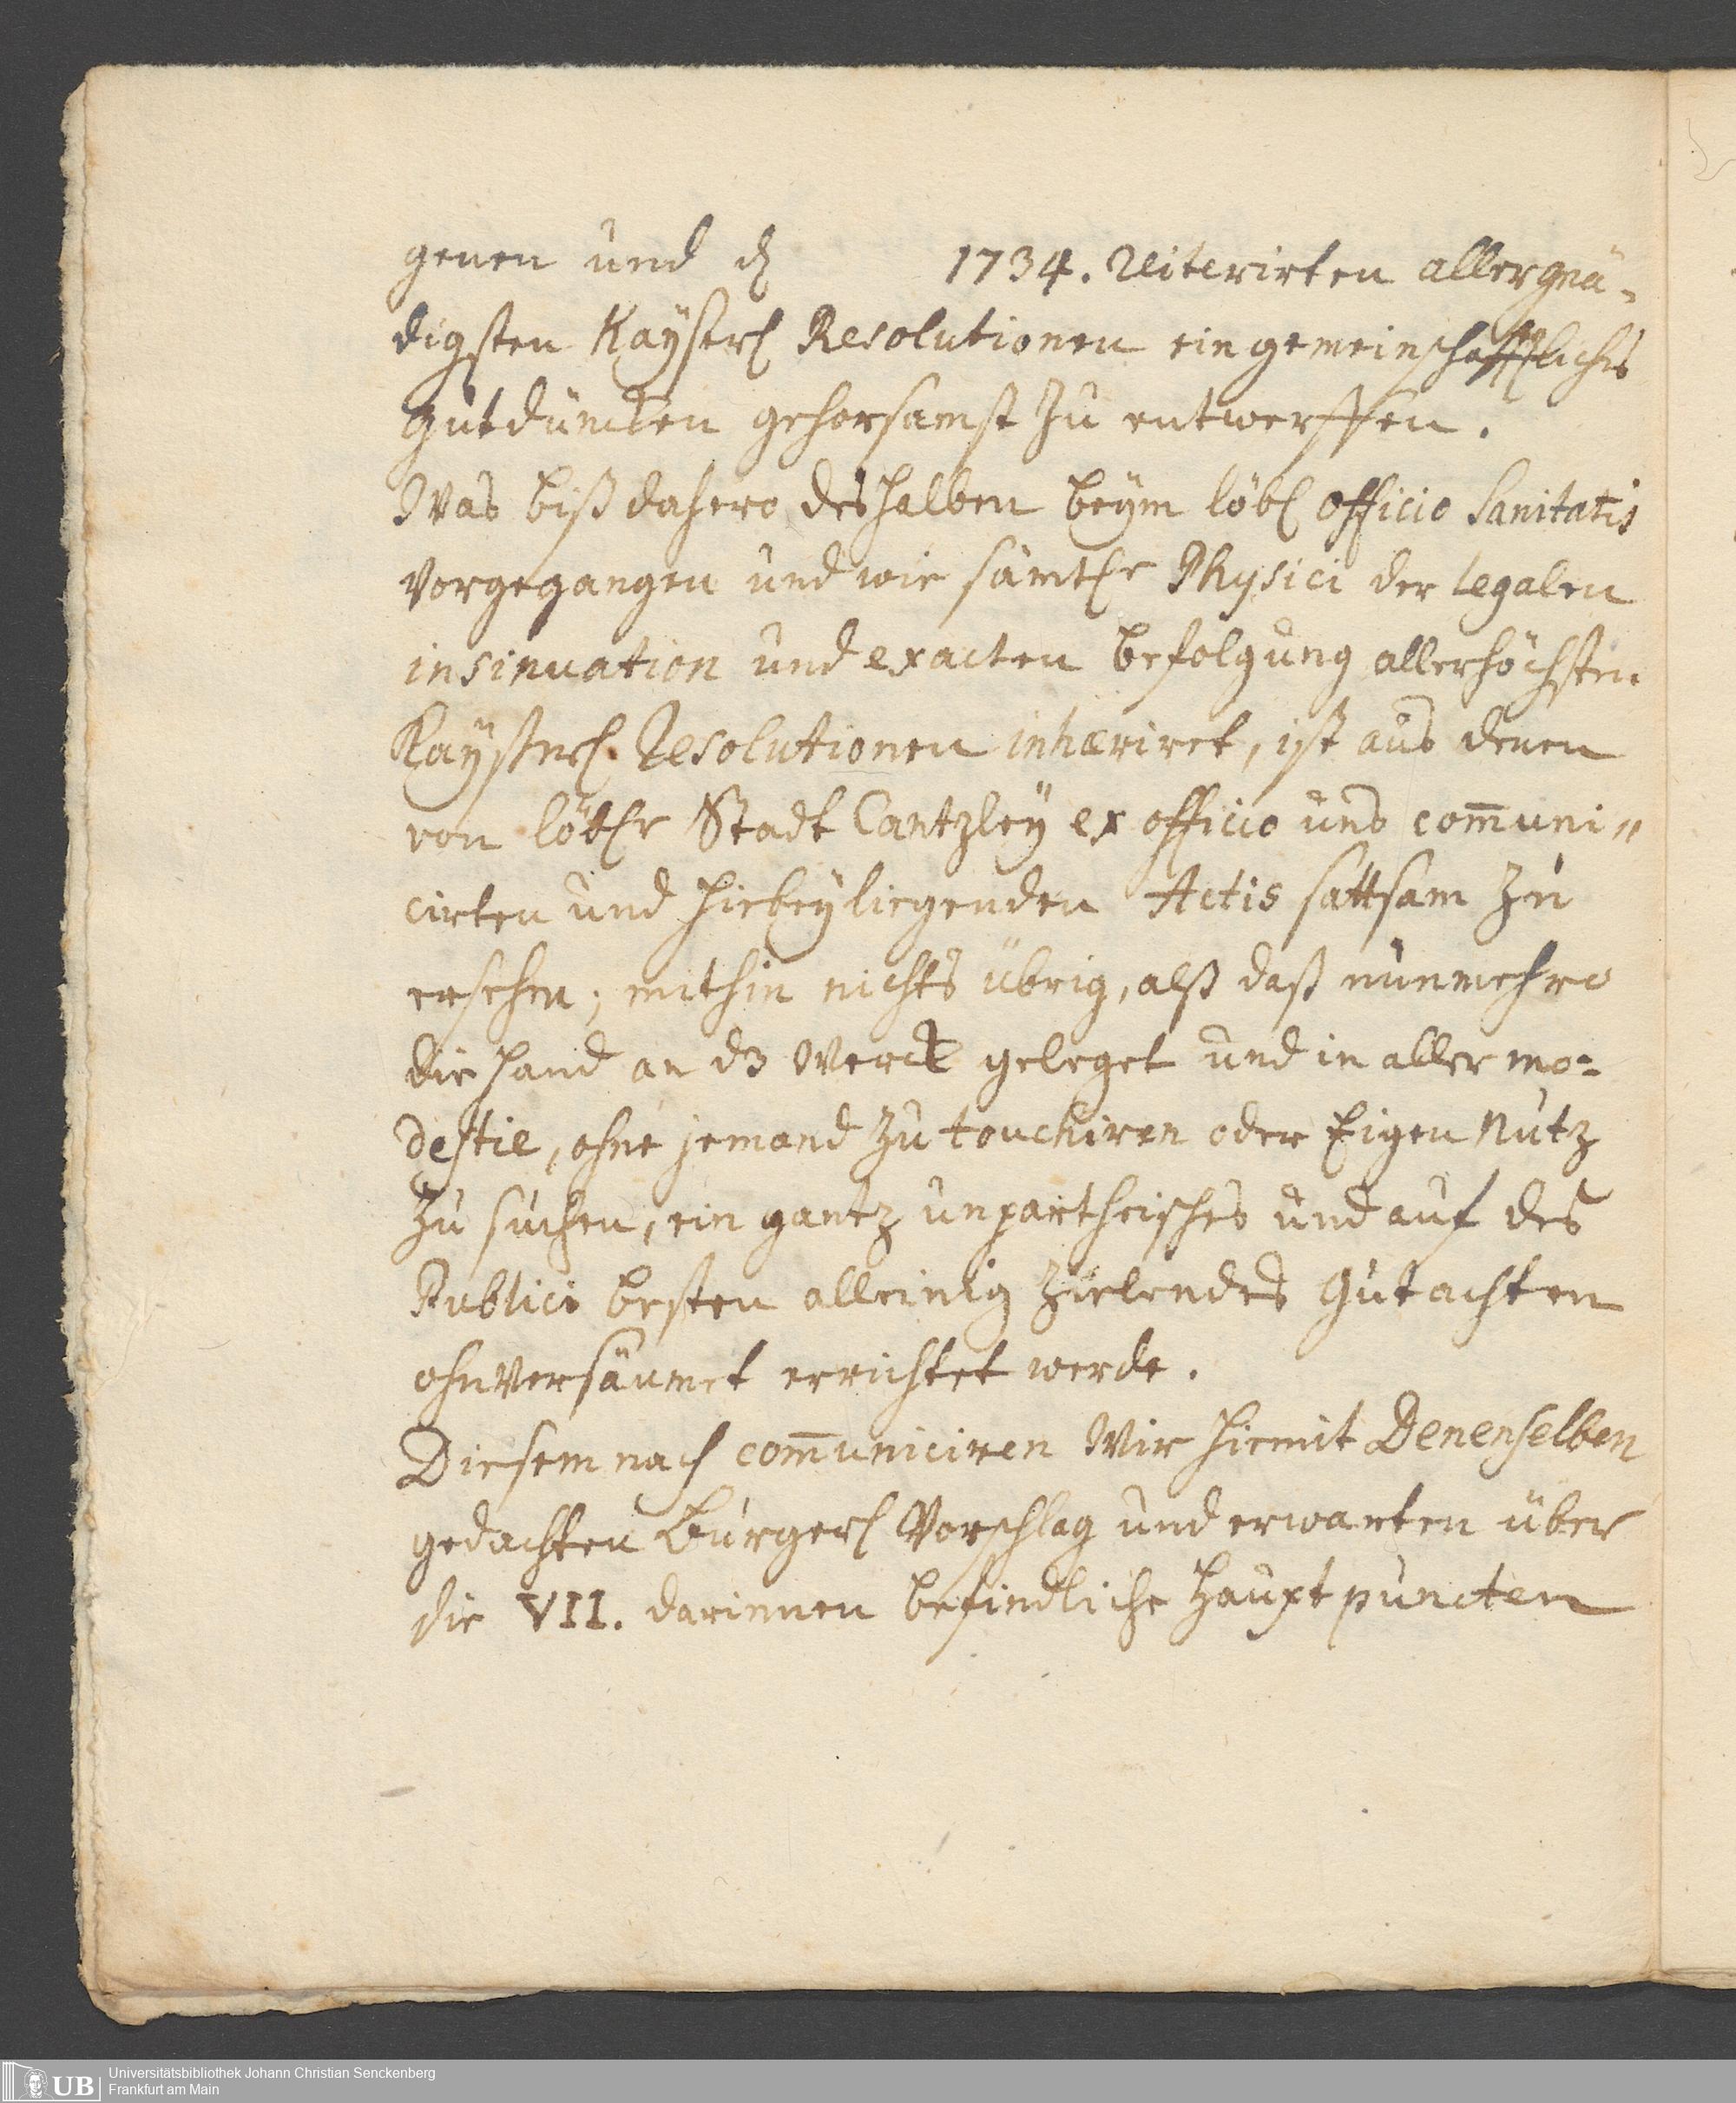 genen und d 1734. reiterirten allergnä-
digsten Kayserl Resolutionen ein gemeinschafftliches
gutdüncken gehorsamst zu entwerffen.
Was biß dahero deshalben beym löbl officio Sanitatis
vorgegangen und wie sämtlr Physici der legalen
insinuation und exacten befolgung allerhöchsten
Kayserl. Resolutionen inhæriret, ist aus denen
von löblr Stadt Cantzley ex officio uns com̄uni„
cirten und hiebey liegenden Actis sattsam zu
ersehen; mithin nichts übrig, alß daß nunmehro
die hand an dz Werck geleget und in aller mo-
destie, ohne jemand zu touchiren oder Eigen Nutz
zu suchen, ein gantz unpartheisches und auf des
Publici besten alleinig zielendes Gutachten
ohnversäumet errichtet werde.
Diesem nach com̄uniciren Wir hiemit Denenselben
gedachten Bürgerl Vorschlag und erwarten über
die VII. darinnen befindliche Hauptpuncten
UB Universitätsbibliothek Johann Christian Senckenberg
Frankfurt am Main